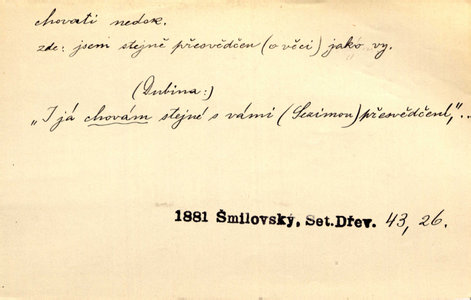 chovati nedok.
zde: jsem stejně přesvědčen (o věci) jako vy.
(Dubina:)
„I já chovám stejné s vámi (Sezimou) přesvědčení,“...
1881 Šmilovský, Set.Dřev. 43, 26.